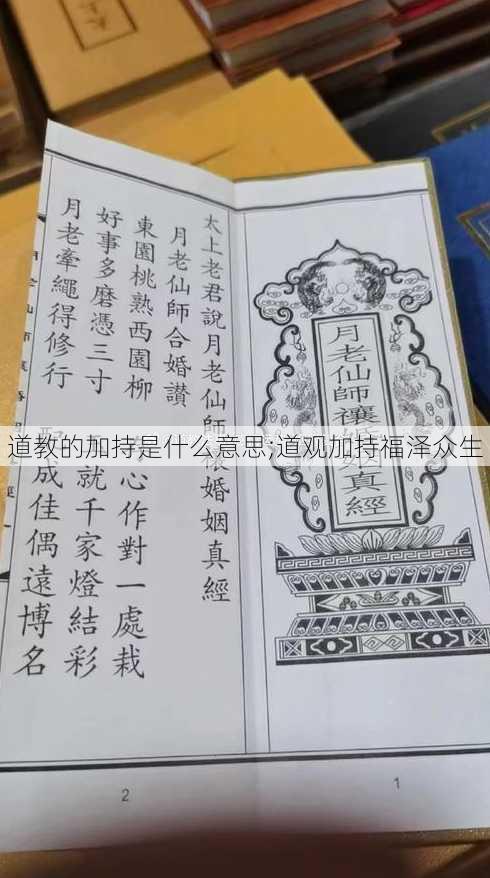 月老仙師禳姻真經
太上老君說月老仙師婚姻真經
月老仙師合婚讚
東園桃熟西園柳 心作對一處栽
好事多磨憑三寸 就千家燈結彩
月老牽繩得修行 成佳偶遠博名
道教的加持是什么意思;道观加持福泽众生
2
1